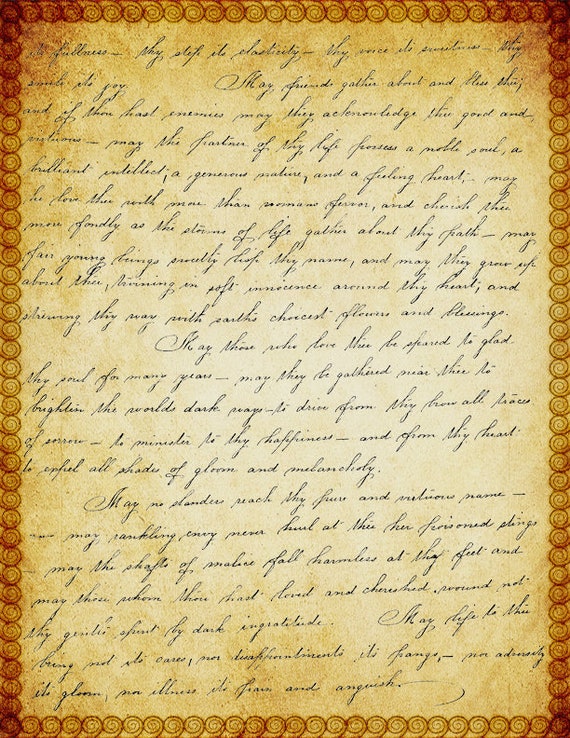 its fullness — thy step its elasticity — thy voice its sweetness — thy
smile its joy. May friends gather about and bless thee,
and if thou hast enemies may they acknowledge thee good and
virtuous — may the partner of thy life possess a noble soul, a
brilliant intellect, a generous nature, and a feeling heart, — may
he love thee with more than womans fervor, and cherish thee
more fondly as the storms of life gather about thy path — may
fair young beings sweetly lisp thy name, and may they grow up
about thee, twining in soft innocence around thy heart, and
strewing thy way with earths choicest flowers and blessings.
May those who love thee be spared to glad
thy soul for many years — may they be gathered near thee to
brighten the worlds dark ways — to drive from thy brow all traces
of sorrow — to minister to thy happiness — and from thy heart
to expel all shades of gloom and melancholy.
May no slanders reach thy pure and virtuous name —
— may rankling envy never hurl at thee her poisoned stings
may the shafts of malice fall harmless at thy feet and
may those whom thou hast loved and cherished, wound not
thy gentle spirit by dark ingratitude. May life to thee
bring not its cares, nor disappointments its pangs, — nor adversity
its gloom, nor illness its pain and anguish.